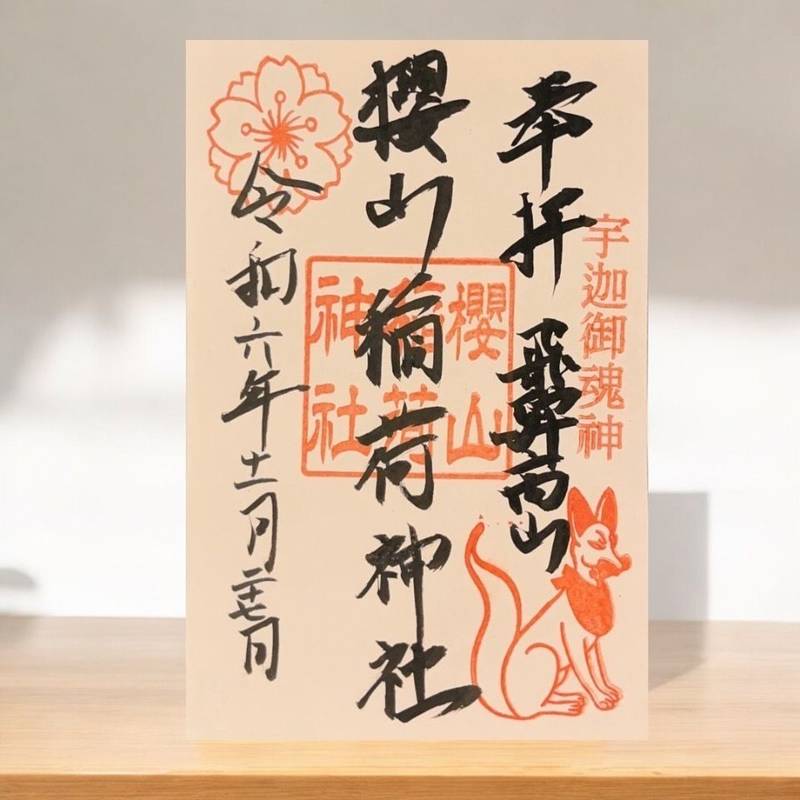 宇迦御魂神
奉拝 飛騨高山
櫻山稲荷神社
櫻山
稲荷
神社
令和六年十一月二十七日